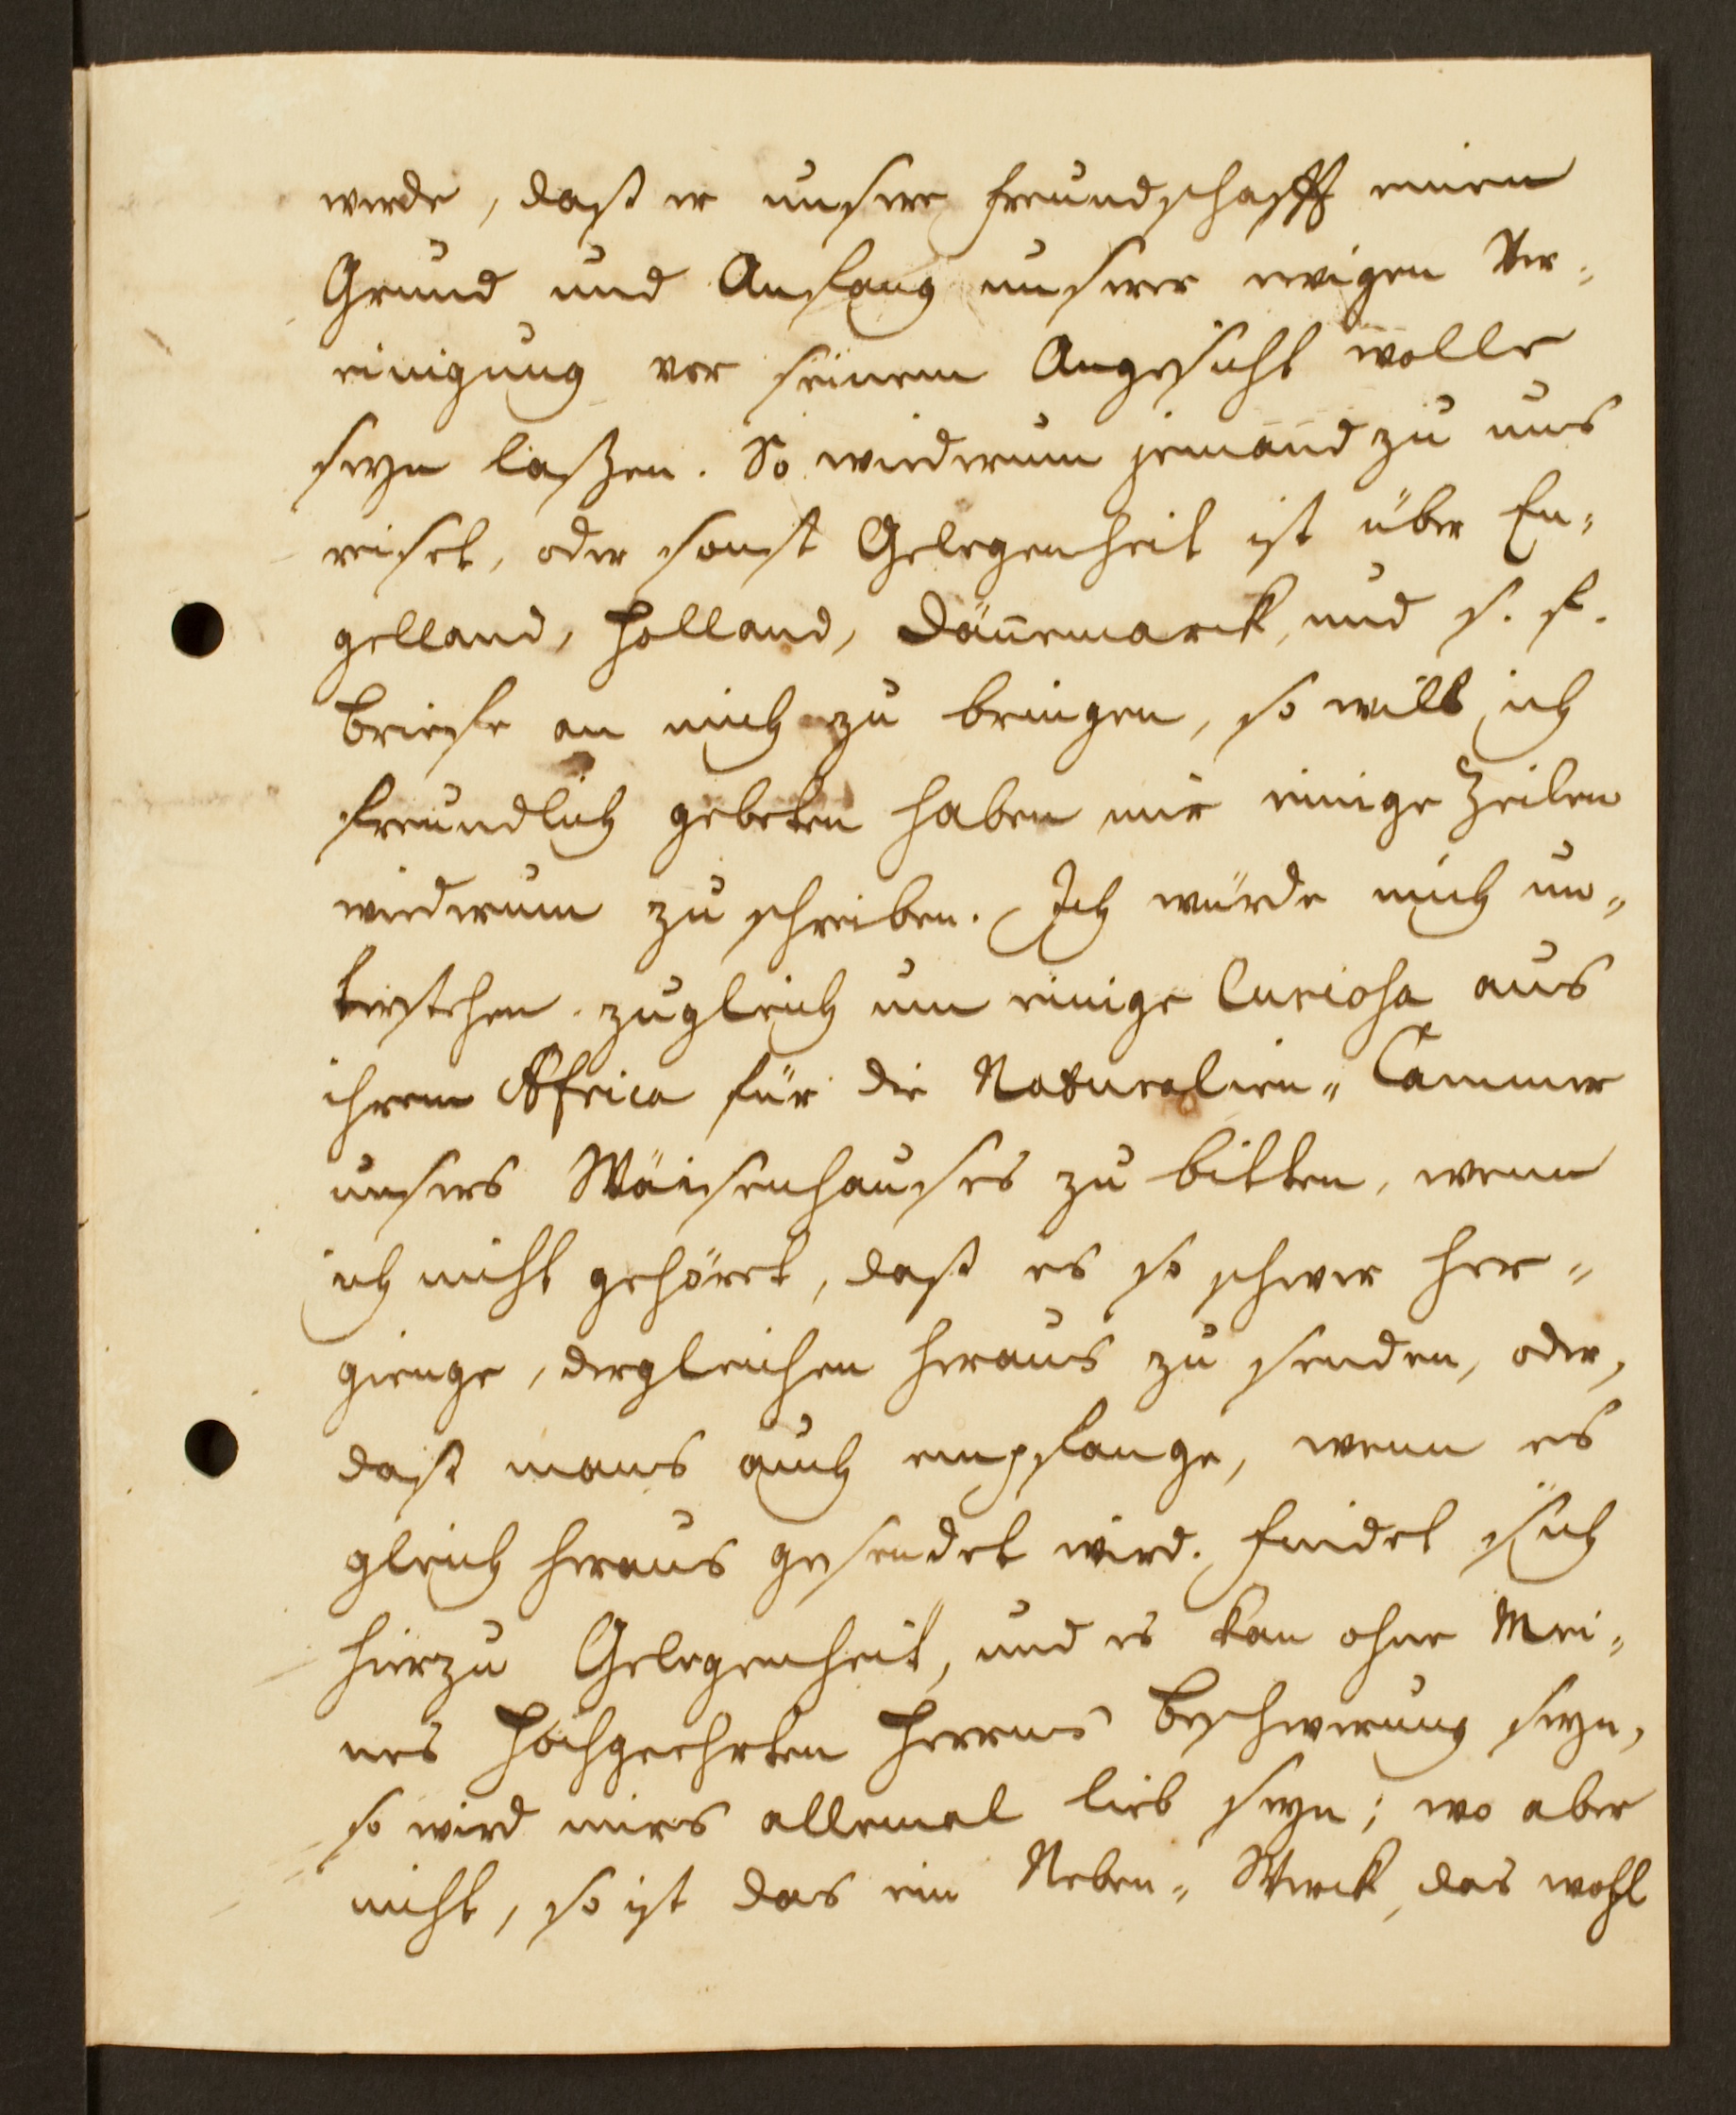 werde, daß er unsere Freundschafft einen
Grund und Anfang unserer ewigen Ver-
einigung vor seinem Angesicht wolle
seyn laßen. So wiederum jemand zu uns
reiset, oder sonst Gelegenheit ist über En-
gelland, Holland, Dännemarck, und s. f.
Briefe an mich zu bringen, so will ich
freundlich gebeten haben mir einige Zeilen
wiederum zu schreiben. Ich würde mich un-
terstehen zugleich um einige Curiosa aus
ihrem Africa für die Naturalien-Cammer
unsers Wäisenhauses zu bitten, wenn
ich nicht gehöret, daß es so schwer her-
gienge, dergleichen heraus zu senden, oder,
daß mans auch empfange, wenn es
gleich heraus gesendet wird. Findet sich
hierzu Gelegenheit, und es kan ohne Mei-
nes Hochgeehrten Herrns Beschwerung seyn,
so wird mirs allemal lieb seyn; wo aber
nicht, so ist das ein Neben-Werck, das wohl